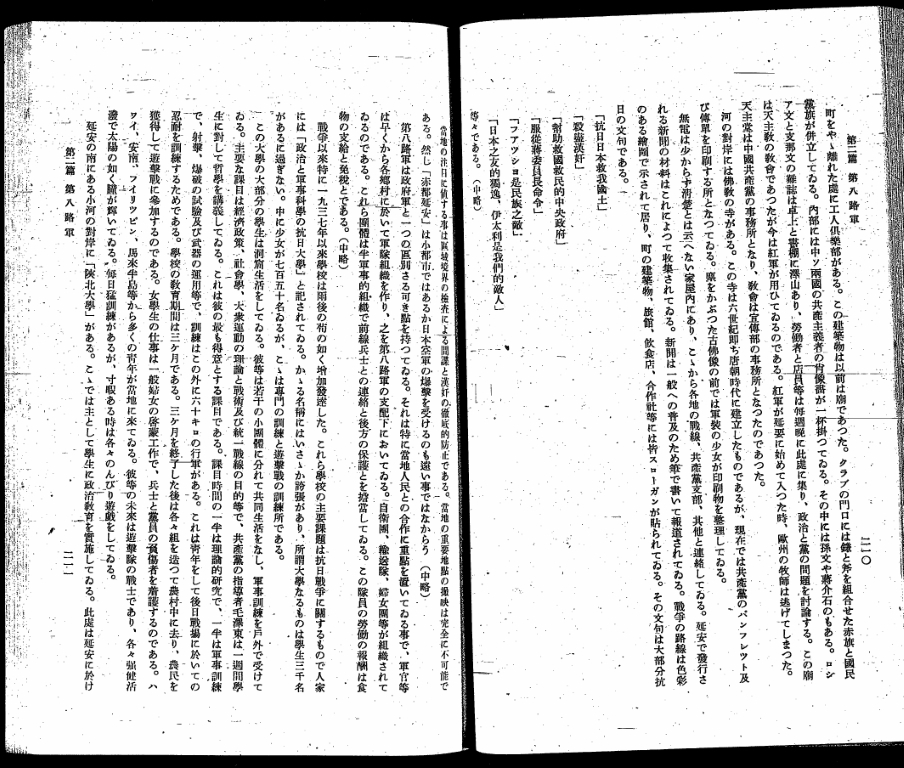 第二篇 第八路軍
二一〇
町をやゝ離れた處に工人倶樂部がある。この建築物は以前は廟であつた。クラブの門口には鎌と斧を組合せた赤旗と國民
黨旗が併立してゐる。内部にはソ兩國の共產主義者の肖像畫が一杯掛つてゐる。その中には孫文や蔣介石のもある。ロシ
ア文と支那文の雜誌は卓上と書棚に澤山あり、勞働者と店員等は每週晚に此處に集り、政治と黨の問題を討論する。この廟
は天主敎の敎會であつたが今は紅軍が用ひてゐるのである。紅軍が延安に始めて入つた時、歐州の牧師は逃げてしまつた。
天主堂は中國共產黨の事務所となり、敎會は宣傳部の事務所となつたのであつた。
河の對岸には佛敎の寺がある。この寺は六世紀卽ち唐朝時代に建立したものであるが、現在では共產黨のパンフレツト及
び傳單を印刷する所となつてゐる。塵をかぶつた古佛像の前では軍裝の少女が印刷物を整理してゐる。
無電は少からず淸楚とは云へない家屋内にあり、こゝから各地の戰線、共產黨支部、其他と連絡してゐる。延安で發行さ
れる新聞の材料はこれによつて收集されてゐる。新聞は一般への普及のため筆で書いて報道されてゐる。戰爭の路線は色彩
のある繪圖で示されて居り、町の建築物、旅館、飮食店、合作社等には皆スローガンが貼られてゐる。その文句は大部分抗
日の文句である。
「抗日日本救我國土」
「殺戮漢奸」
「幇助救國救民的中央政府」
「服從蔣委員長命令」
「フアツシヨ是民族之敵」
「日本之友的獨逸、伊太利是我們的敵人」
等々である。(中略)
當地の注目に値する事は區域境界の檢査による間諜と漢奸の徹底的防止である。當地の重要地點の撮映は完全に不可能で
ある。然し「赤都延安」は小都市ではあるが日本空軍の爆擊を受けるのも遠い事ではなからう (中略)
第八路軍は政府軍と一つの區別さる可き點を持つてゐる。それは特に當地人民との合作に重點を置いてゐる事で、軍官等
は早くから各鄕村に於いて軍隊組織を作り、之を第八路軍の支配下においてゐる。自衞團、輸送隊、婦女團等が組織されて
ゐるのである。これら團體は半軍事的組織で前線兵士との連絡と後方の保護とを擔當してゐる。この隊員の勞働の報酬は食
物の支給と免稅とである。(中略)
戰爭以來特に一九三七年以來學校は雨後の筍の如く增加發達した。これら學校の主要課題は抗日戰爭に關するもので人家
には「政治と軍事科學の抗日大學」と記されてゐる。かゝる名稱にはいさゝか誇張があり、所謂大學なるものは學生三千名
があるに過ぎない。中に少女が七百五十名ゐるが、こゝは專門の訓練と遊擊戰の訓練所である。
この大學の大部分の學生は洞窟生活をしてゐる。彼等は若干の小團體に分れて共同生活をなし、軍事訓練を戶外で受けて
ゐる。主要な課目は經濟政策、社會學、大衆運動の理論と戰術及び統一戰線の目的等で、共產黨の指導者毛澤東は一週間學
生に對して哲學を講義してゐる。これは彼の最も得意とする課目である。課目時間の一半は理論的硏究で、一半は軍事訓練
で、射擊、爆破の試驗及び武器の運用等で、訓練はこの外に六十キロの行軍がある。これは靑年をして後日戰場に於いての
忍耐を訓練するためである。學校の敎育期間は三ヶ月である。三ヶ月を終了した後は各々組を造つて農村中に去り、農民を
獲得して遊擊戰に參加するのである。女學生の仕事は一般婦女の啓蒙工作で、兵士と黨員の負傷者を看護するのである。ハ
ワイ、安南、フイリツピン、馬來半島等から多くの靑年が當地に來てゐる。彼等の未來は遊擊隊の戰士であり、各々强健活
潑で太陽の如く瞳が輝いてゐる。每日猛訓練があるが、寸暇ある時は各々のんびり遊戲をしてゐる。
延安の南にある小河の對岸に「陝北大學」がある。こゝでは主として學生に政治敎育を實施してゐる。此處は延安に於け
第二篇 第八路軍
二一一